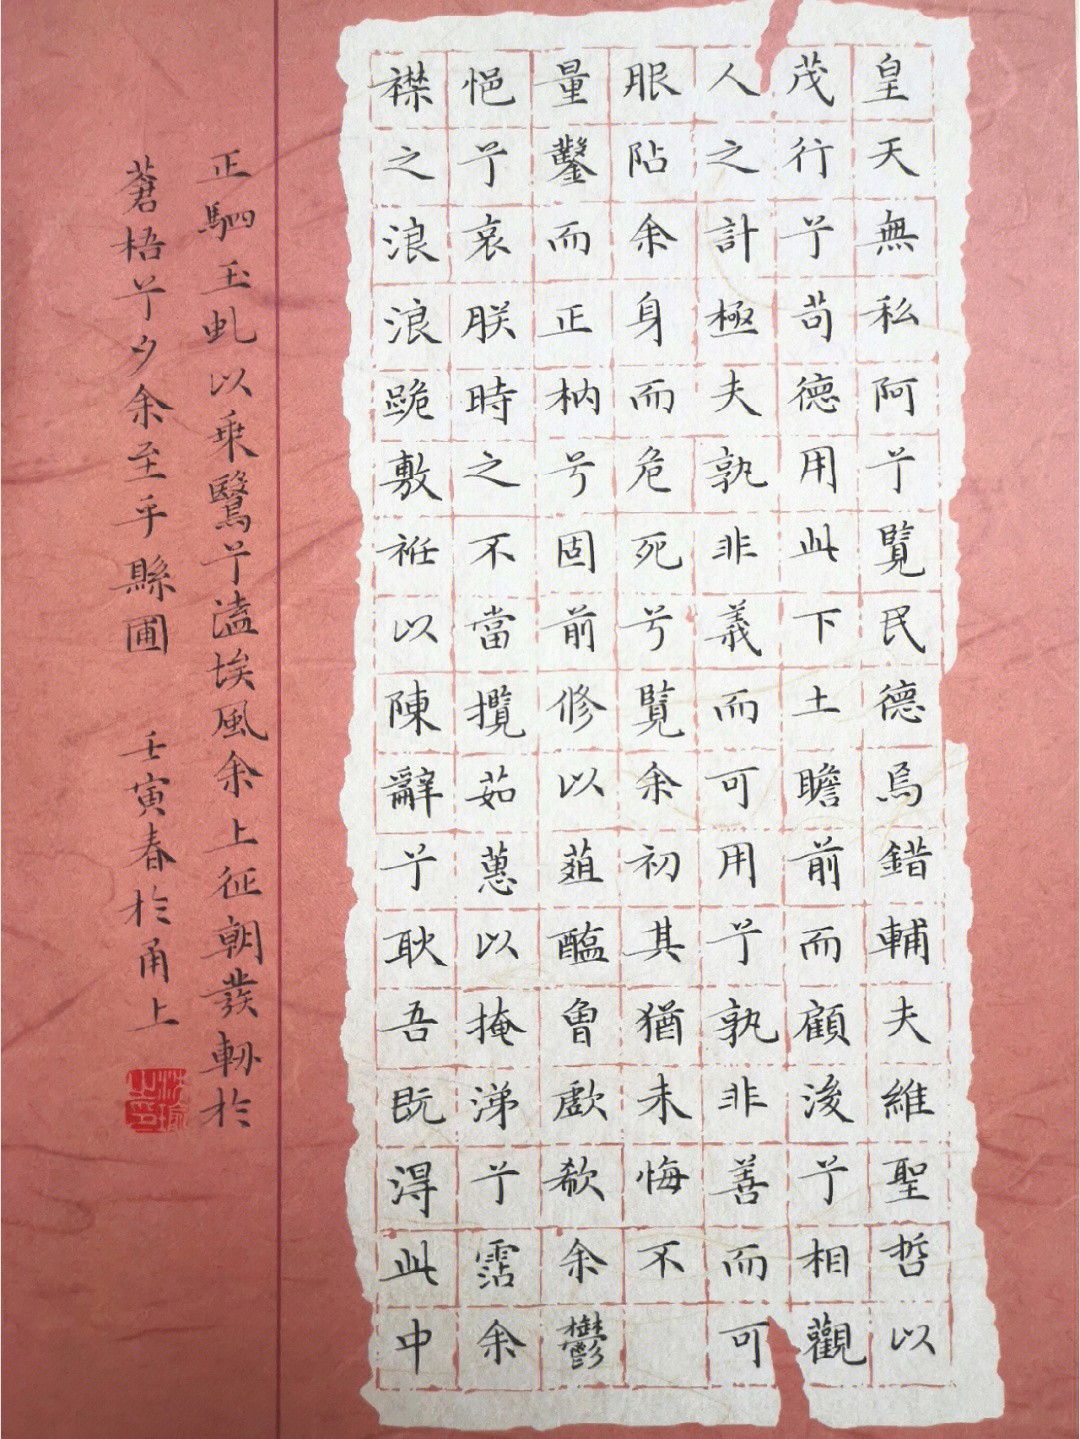 皇天無私阿兮覽民德焉錯輔夫維聖哲以
茂行兮苟德用此下土瞻前而顧後兮相觀
人之計極夫孰非義而可用兮孰非善而可
服阽余身而危死兮覽余初其猶未悔不
量鑿而正枘兮固前修以菹醢曾歔欷余鬱
悒兮哀朕時之不當攬茹蕙以掩涕兮霑余
襟之浪浪跪敷衽以陳辭兮耿吾既得此中
正駟玉虬以乘鷖兮溘埃風余上征朝發軔於
蒼梧兮夕余至乎縣圃 壬寅春於甬上